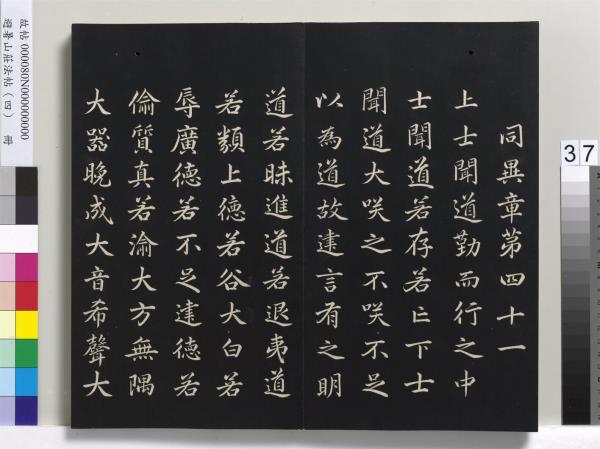 同異章第四十一
上士聞道勤而行之中
士聞道若存若亡下士
聞道大咲之不咲不足
以為道故建言有之明
道若昧進道若退夷道
若纇上德若谷大白若
辱廣德若不足建德若
偷質真若渝大方無隅
大器晚成大音希聲大
故帖 000080N000000000
避暑山莊法帖（四） 冊
37